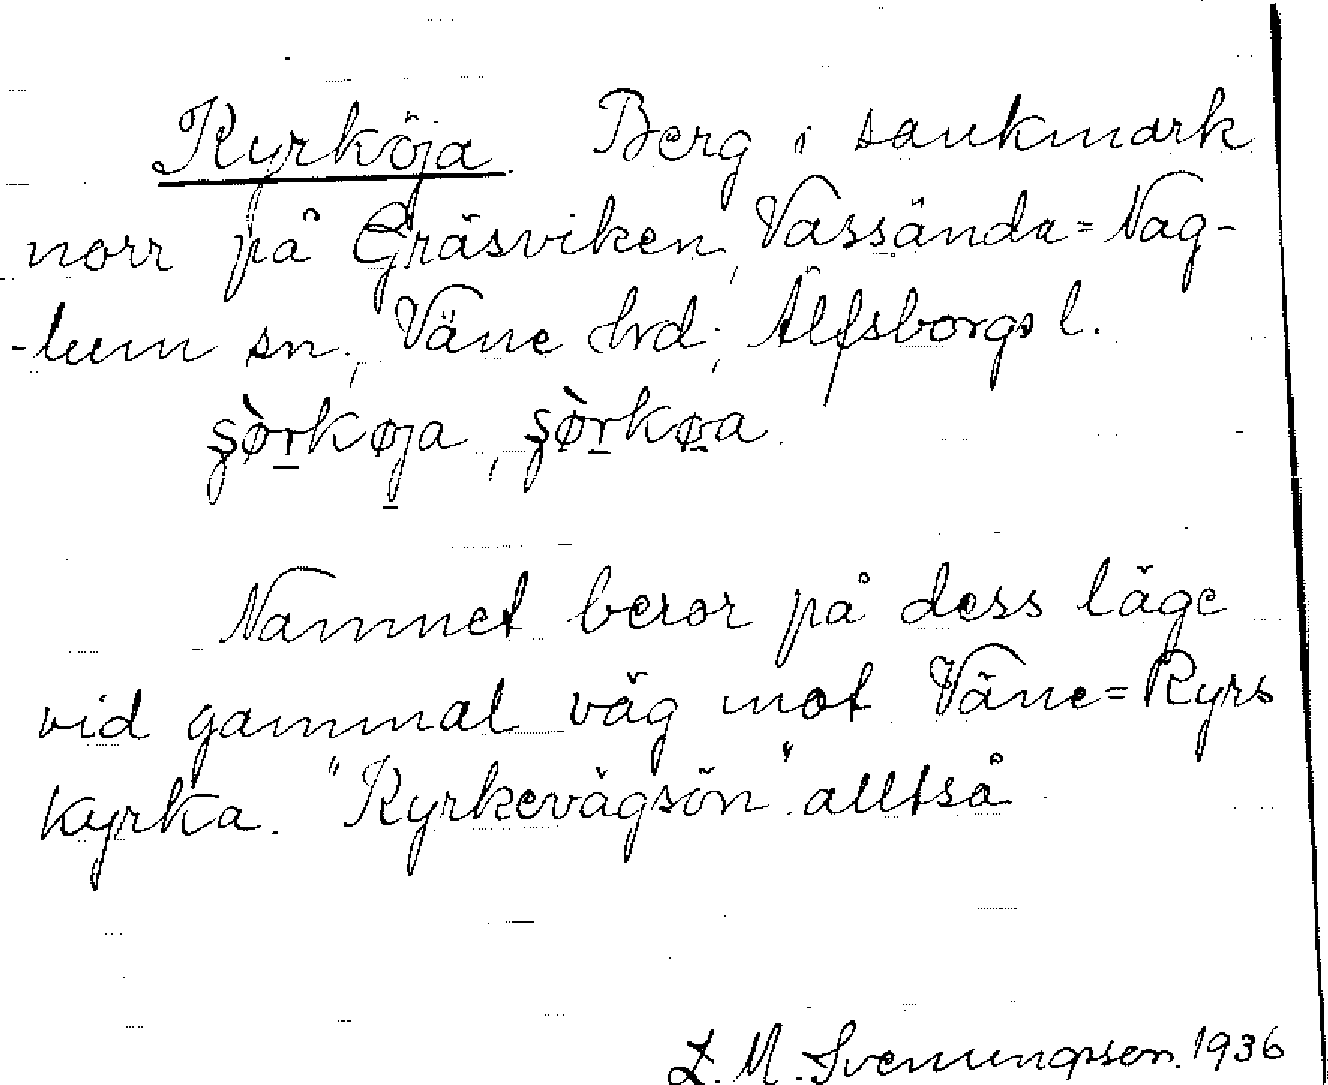 Kyrköja. Berg i sankmark
norr på Gräsviken, Vassända=Nag-
-lum sn., Väne hrd., Älfsborgs l.
ʂø̀rkøja, ʂø̀rkøa.
Namnet beror på dess läge
vid gammal väg mot Väne=Ryrs
Kyrka. "Kyrkevägsön" alltså
L. M. Svenungsson. 1936